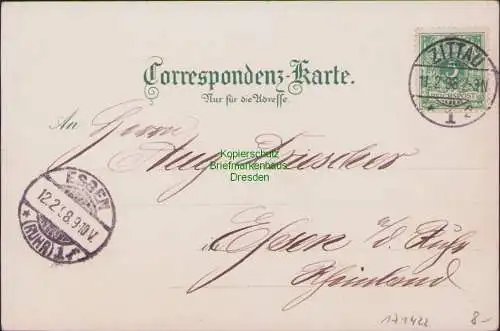 ZITTAU
11.2.98. 9-N
5
REICHSPOST
1
Correspondenz-Karte.
Nur für die Adresse.
An Herrn
Aug Drescher
Kopierschutz
Briefmarkenhaus
Dresden
ESSEN
12.2.98.9-10V.
* (RUHR) 1 f
in Essen a/d Ruhr
Rheinland
171422 8-